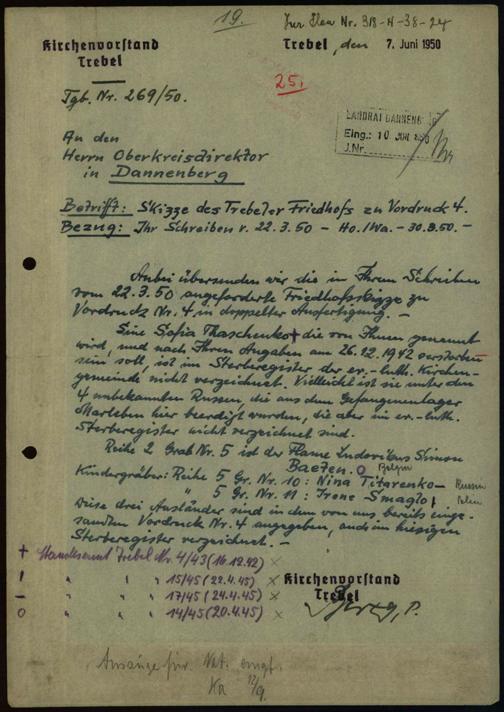 19.
Zur Nr. 318-H-38-24
Kirchenvorstand
Trebel
Trebel, den 7. Juni 1950
25.
Tgb. Nr. 269/50.
LANDRAT DANNENB
Eing.: 10. JUN. 1950
J.Nr.
An den
Herrn Oberkreisdirektor
in Dannenberg
Betrifft: Skizze des Trebeler Friedhofs zu Vordruck 4.
Bezug: Ihr Schreiben v. 22.3.50 – Ho./Wa. – 30.3.50. –
Anbei übersenden wir die in Ihrem Schreiben
vom 22.3.50 angeforderte Friedhofsskizze zu
Vordruck Nr. 4 in doppelter Ausfertigung. –
Eine Sofia Thaschenko + die von Ihnen genannt
wird, und nach Ihren Angaben am 26.12.1942 verstorben
sein soll, ist im Sterberegister der ev.-luth. Kirchen-
gemeinde nicht verzeichnet. Vielleicht ist sie unter den
4 unbekannten Russen, die aus dem Gefangenenlager
Marleben hier beerdigt wurden, die aber im ev.-luth.
Sterberegister nicht verzeichnet sind.
Reihe 2 Grab Nr. 5 ist der Flame Ludovikus Simon
Baeten. O Belgier
Kindergräber: Reihe 5 Gr. Nr. 10: Nina Titarenko – Russin
" 5 Gr. Nr. 11: Irene Smaglo! Polin
Diese drei Ausländer sind in dem von uns bereits einge-
sandten Vordruck Nr. 4 angegeben, auch im hiesigen
Sterberegister verzeichnet. –
+ Standesamt Trebel Nr. 4/43 (16.12.42) ×
! " " " 15/45 (22.4.45) ×
– " " " 17/45 (24.4.45) ×
O " " " 14/45 (20.4.45) ×
Kirchenvorstand
Trebel
Auszüge für Nat.
Ka 12/9.